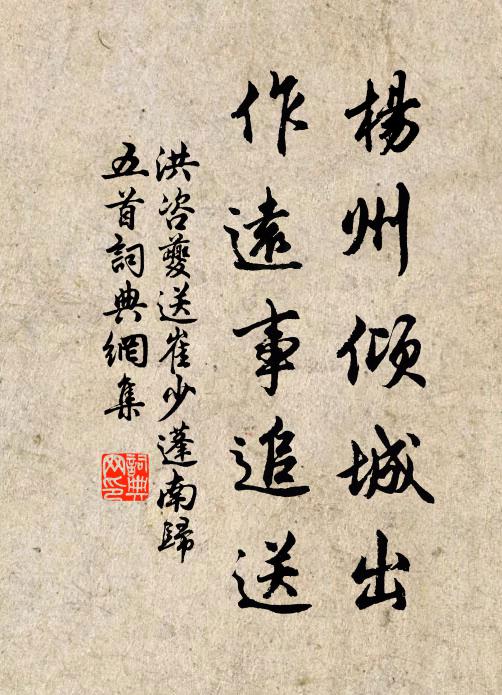 楊州傾城出
作遠事追送
洪咨夔送崔少蓬南歸
五首詞典網集
詞典
网印